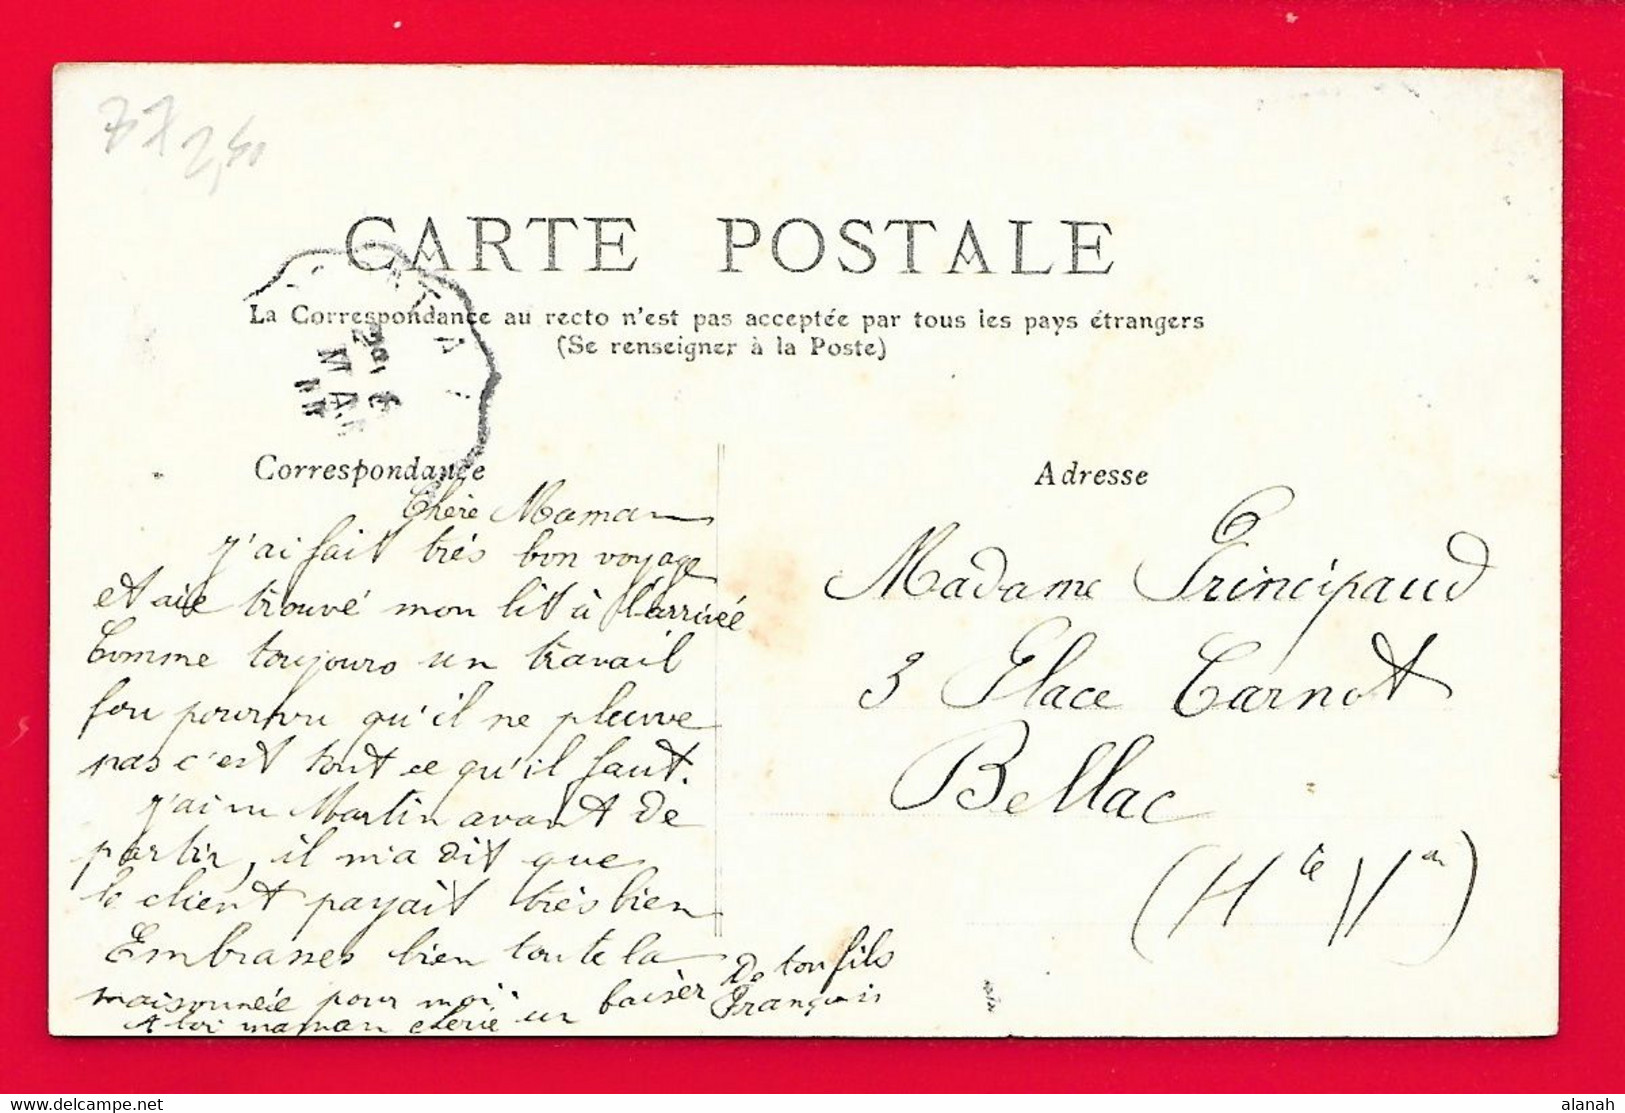 77
2,50
CARTE POSTALE
La Correspondance au recto n'est pas acceptée par tous les pays étrangers
(Se renseigner à la Poste)
Correspondance
Chère Maman
j'ai fait très bon voyage
et aie trouvé mon lit à l'arrivée
Comme toujours un travail
fou pourvu qu'il ne pleuve
pas c'est tout ce qu'il faut.
j'ai vu Martin avant de
partir, il m'a dit que
le client payait très bien
Embrasses bien toute la
maisonnée pour moi
A toi maman chérie un baiser
De ton fils
François
Adresse
Madame Principaud
3 Place Carnot
Bellac
(Hte Vne)
alanah